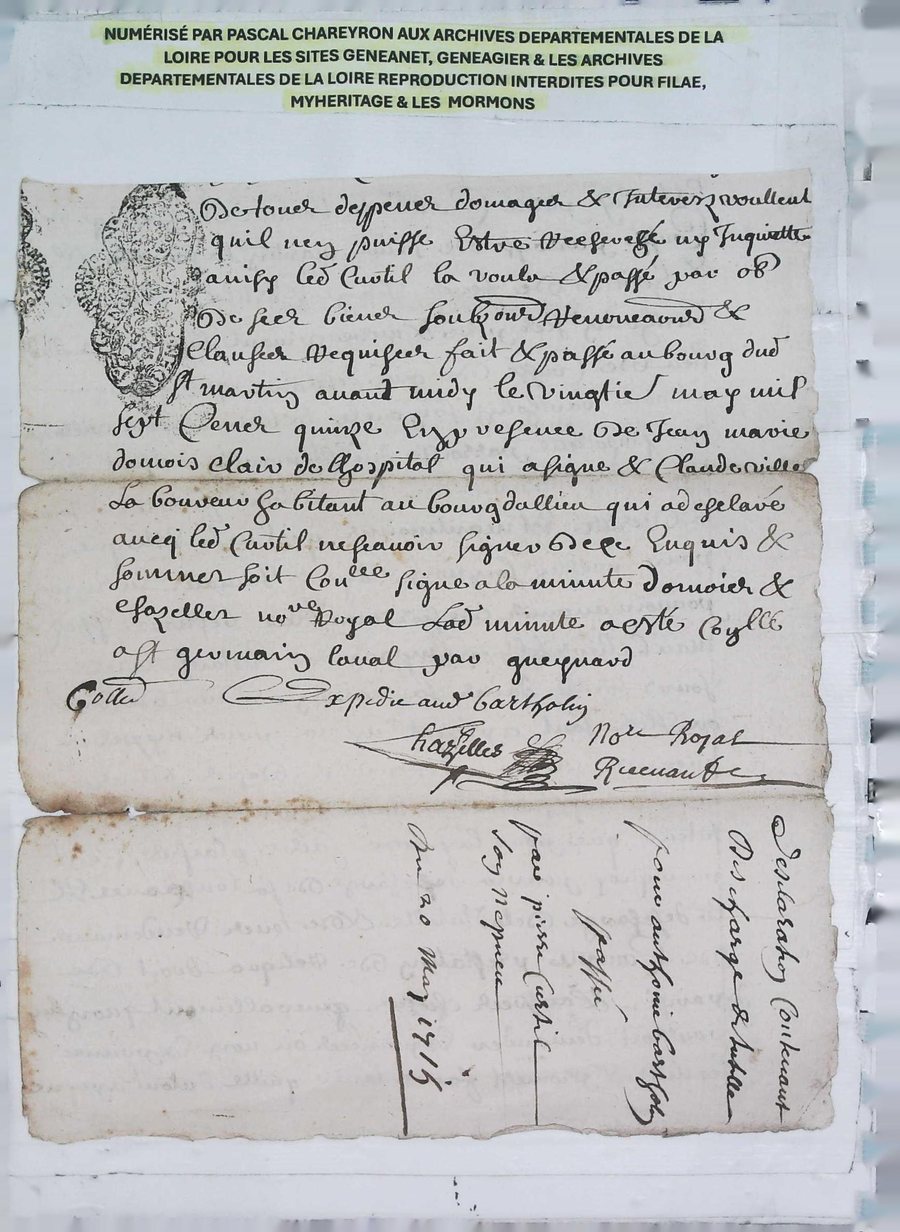 NUMÉRISÉ PAR PASCAL CHAREYRON AUX ARCHIVES DEPARTEMENTALES DE LA
LOIRE POUR LES SITES GENEANET, GENEAGIER & LES ARCHIVES
DEPARTEMENTALES DE LA LOIRE REPRODUCTION INTERDITES POUR FILAE,
MYHERITAGE & LES MORMONS
De toues despenes domages & Interez voullent
quil ney puisse Estre Recherché ny Inquiette
ainsy led Curtil la voulu & passé par ob
De ses biens soubz Renonceaons &
Clauses Requises fait & passé au bourg dud
st martin auant midy le vingtie may mil
sept Cens quinze En presence De Jean marie
domois clair de lhospital qui a signe & Claude
La boureur habitant au bourg dallieu qui a desclaré
aueq led Curtil ne scauoir signer De ce Enquis &
sommes soit Conlle signe a la minute Domois &
Chazelles nore Royal Lad minute a esté Conllé
a st germain laual par gueynard
Expedie aud barthollin
Chazelles Nore Royal
Desclaration Contenant
Descharge de tutelle
pour anthoine barthollin
passé
par pierre Curtil
son nepueu
Du 20 May 1715